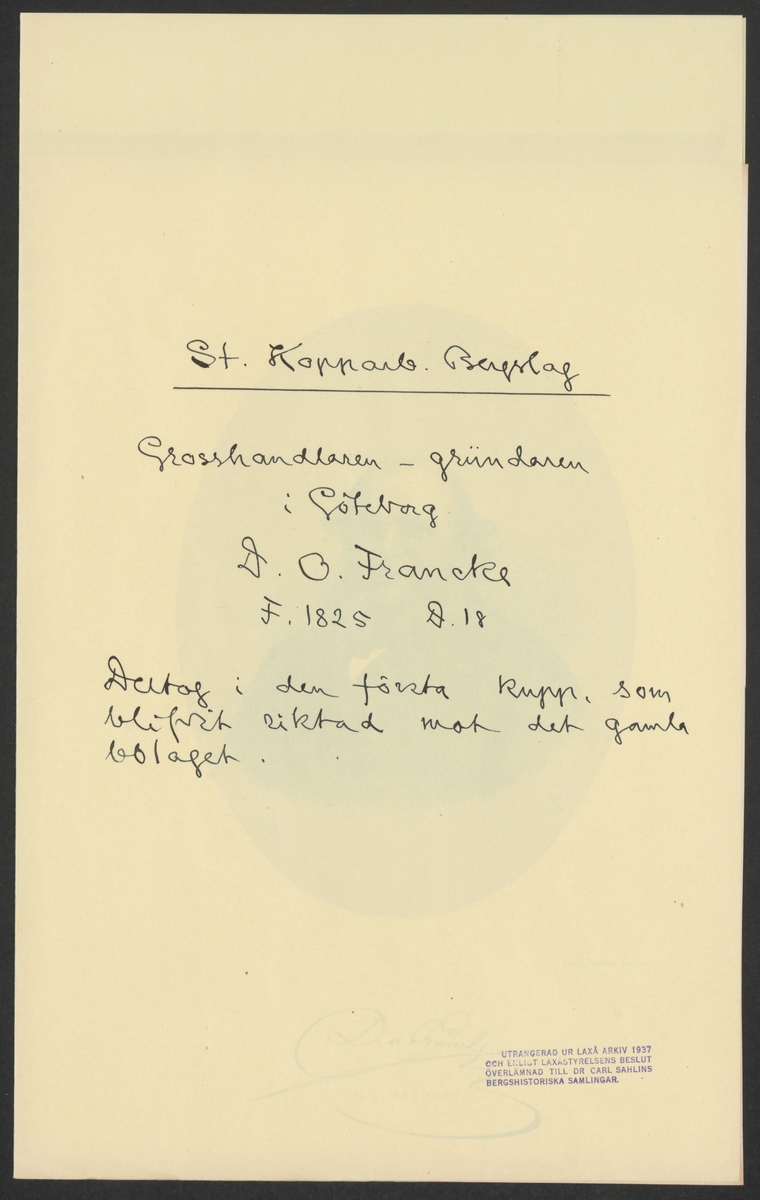 St. Kopparb. Bergslag
Grosshandlaren - gründaren
i Göteborg
D. O. Francke
F. 1825 D. 18
Deltog i den första kupp, som
blifvit riktad mot det gamla
bolaget.
UTRANGERAD UR LAXÅ ARKIV 1937
OCH ENLIGT LAXÅSTYRELSENS BESLUT
ÖVERLÄMNAD TILL DR CARL SAHLINS
BERGSHISTORISKA SAMLINGAR.